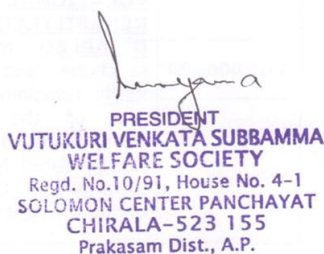 PRESIDENT
VUTUKURI VENKATA SUBBAMMA
WELFARE SOCIETY
Regd. No.10/91, House No. 4-1
SOLOMON CENTER PANCHAYAT
CHIRALA-523 155
Prakasam Dist., A.P.